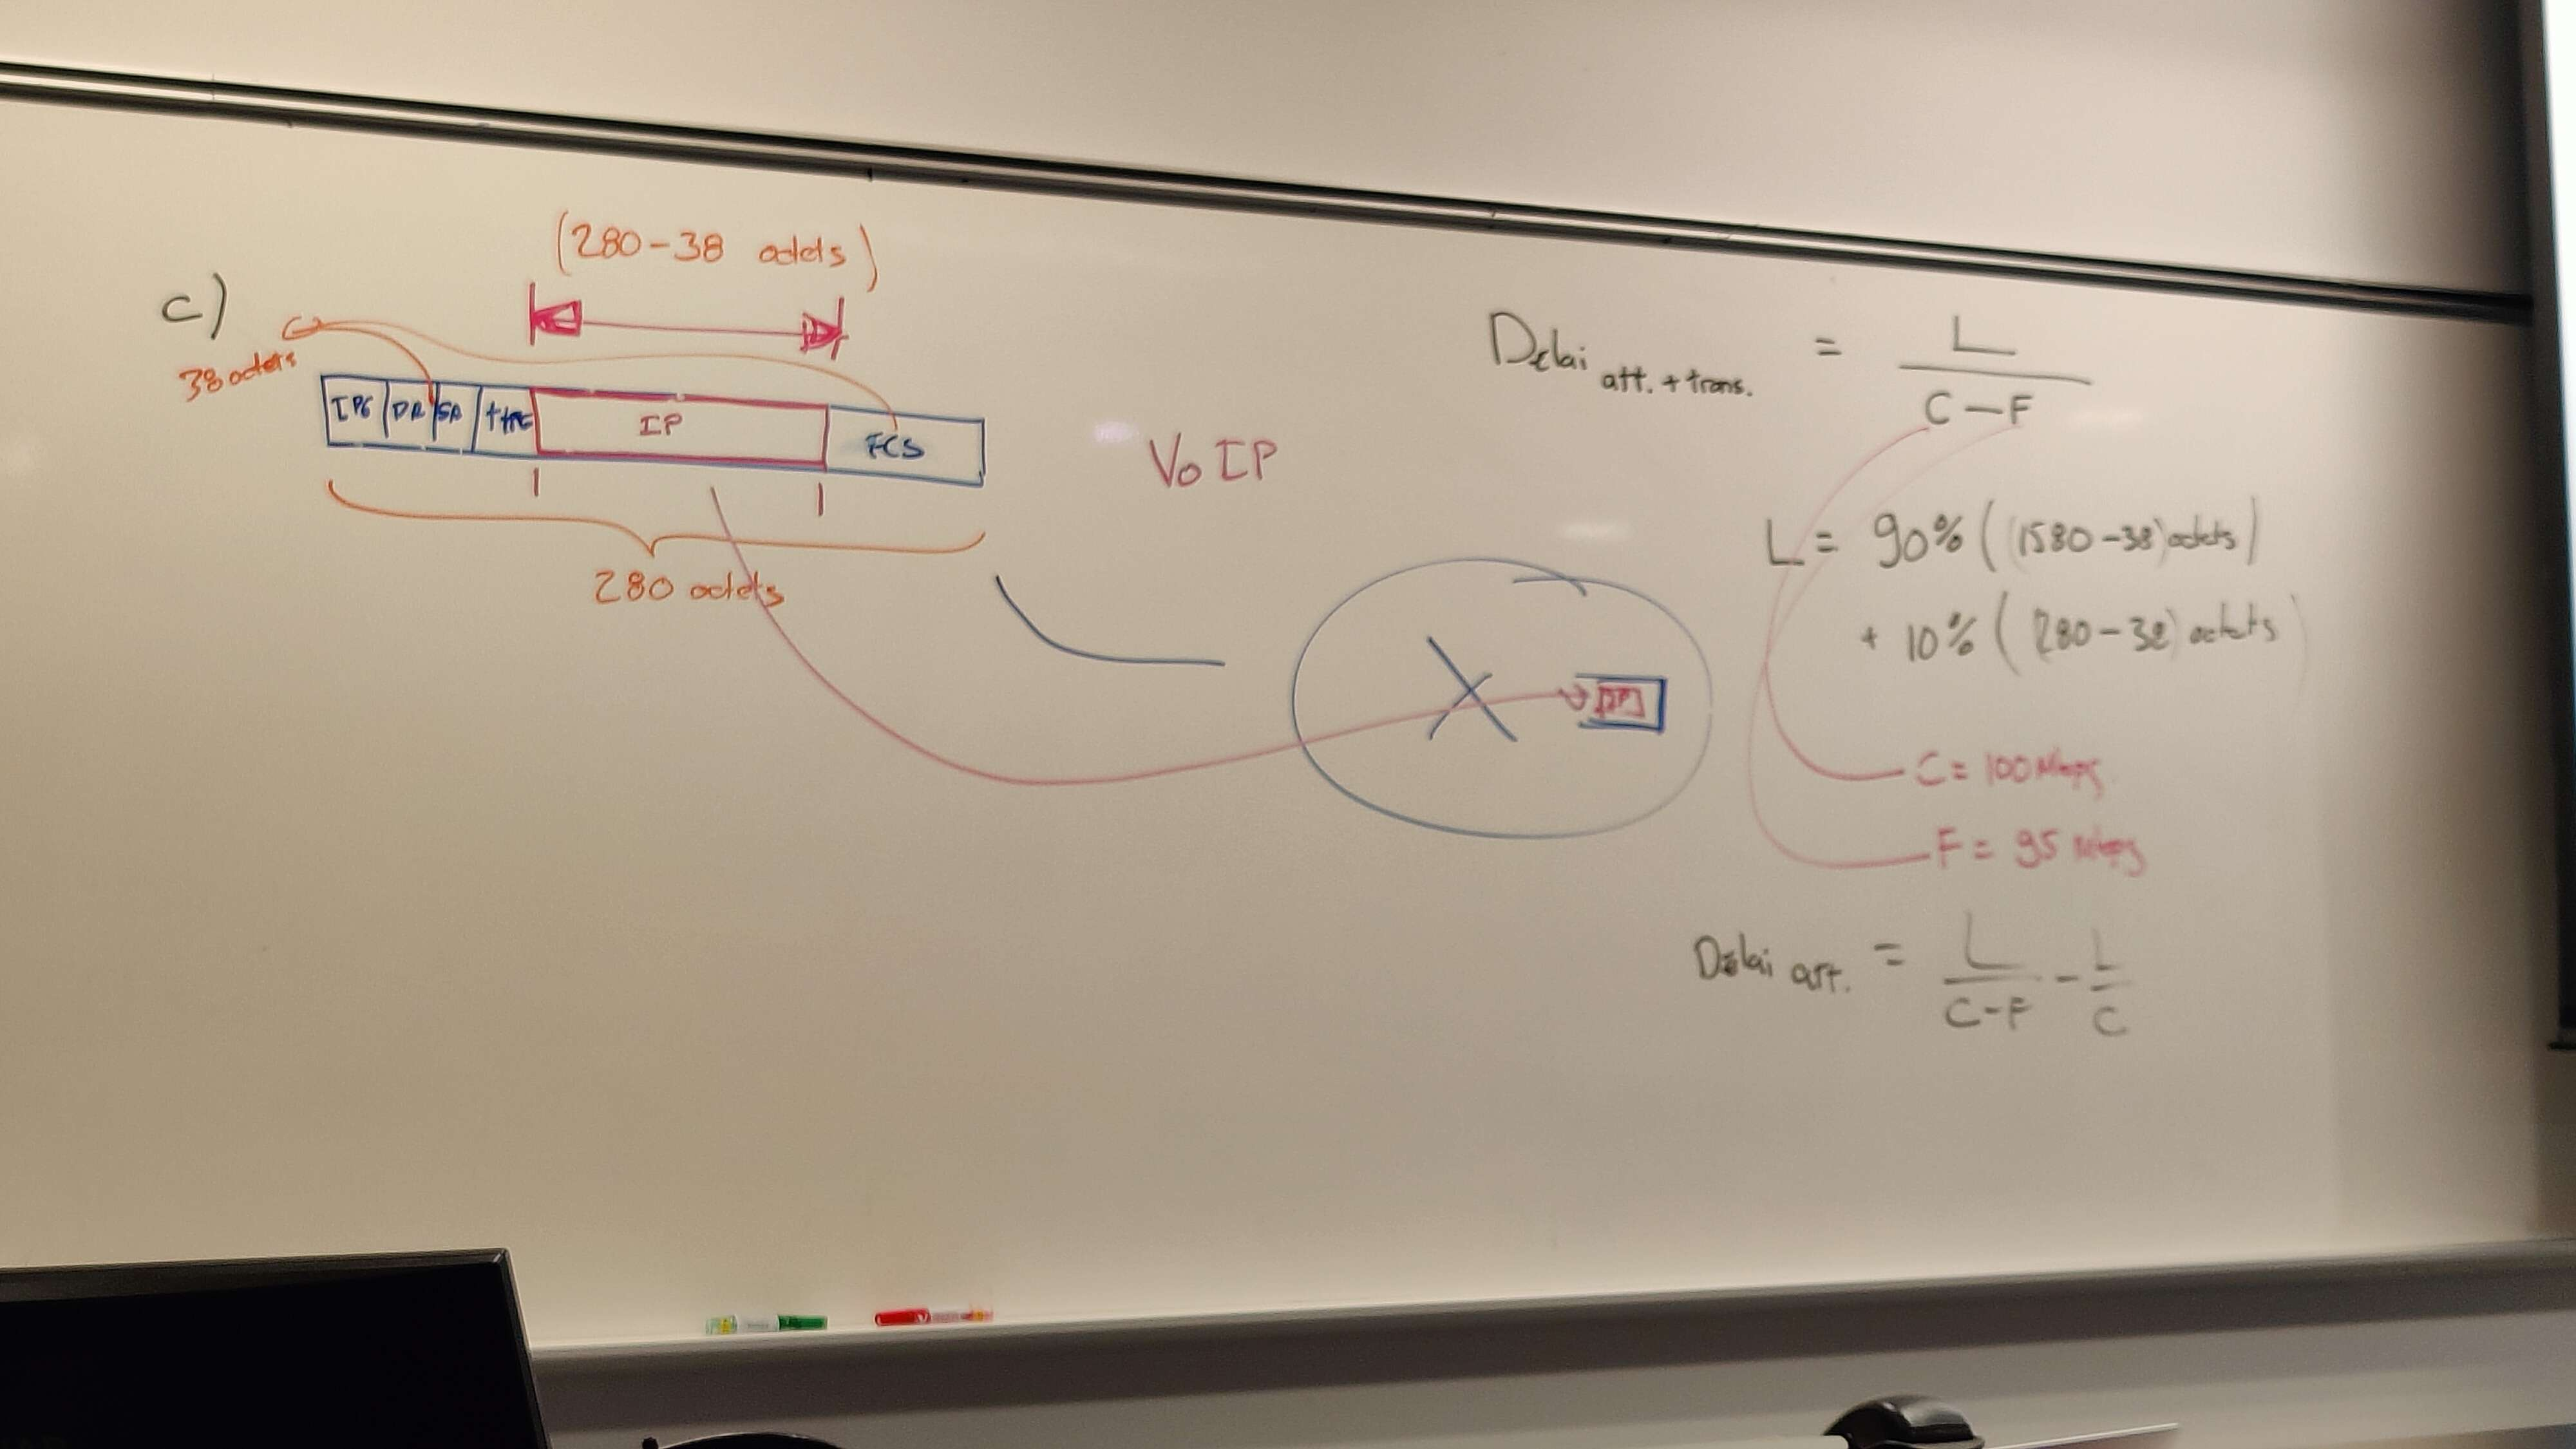 c)
(280-38 octets)
38 octets
IPG DA SA type IP FCS
280 octets
VoIP
Délai att. + trans. = L / C-F
L = 90% ((1580-38) octets)
+ 10% ((280-38) octets)
C = 100 Mbps
F = 95 Mbps
Délai att. = L / C-F - L / C